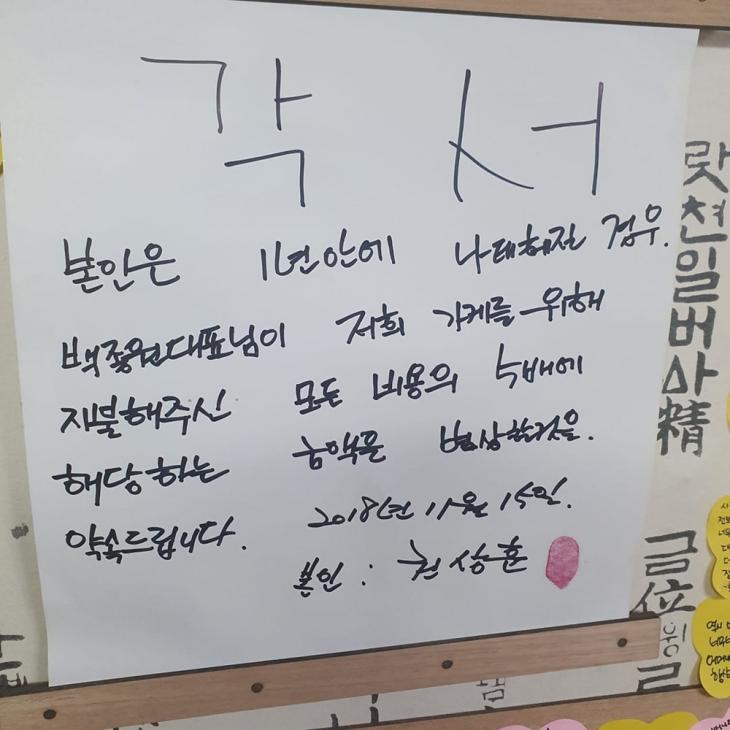 각 서
본인은 1년안에 나태해진 경우.
백종원대표님이 저희 가게를 위해
지불해주신 모든 비용의 5배에
해당하는 금액을 변상할것을.
약속드립니다. 2018년 11월 15일.
본인 : 권상훈
랏
천
일
버
사
精
금
位